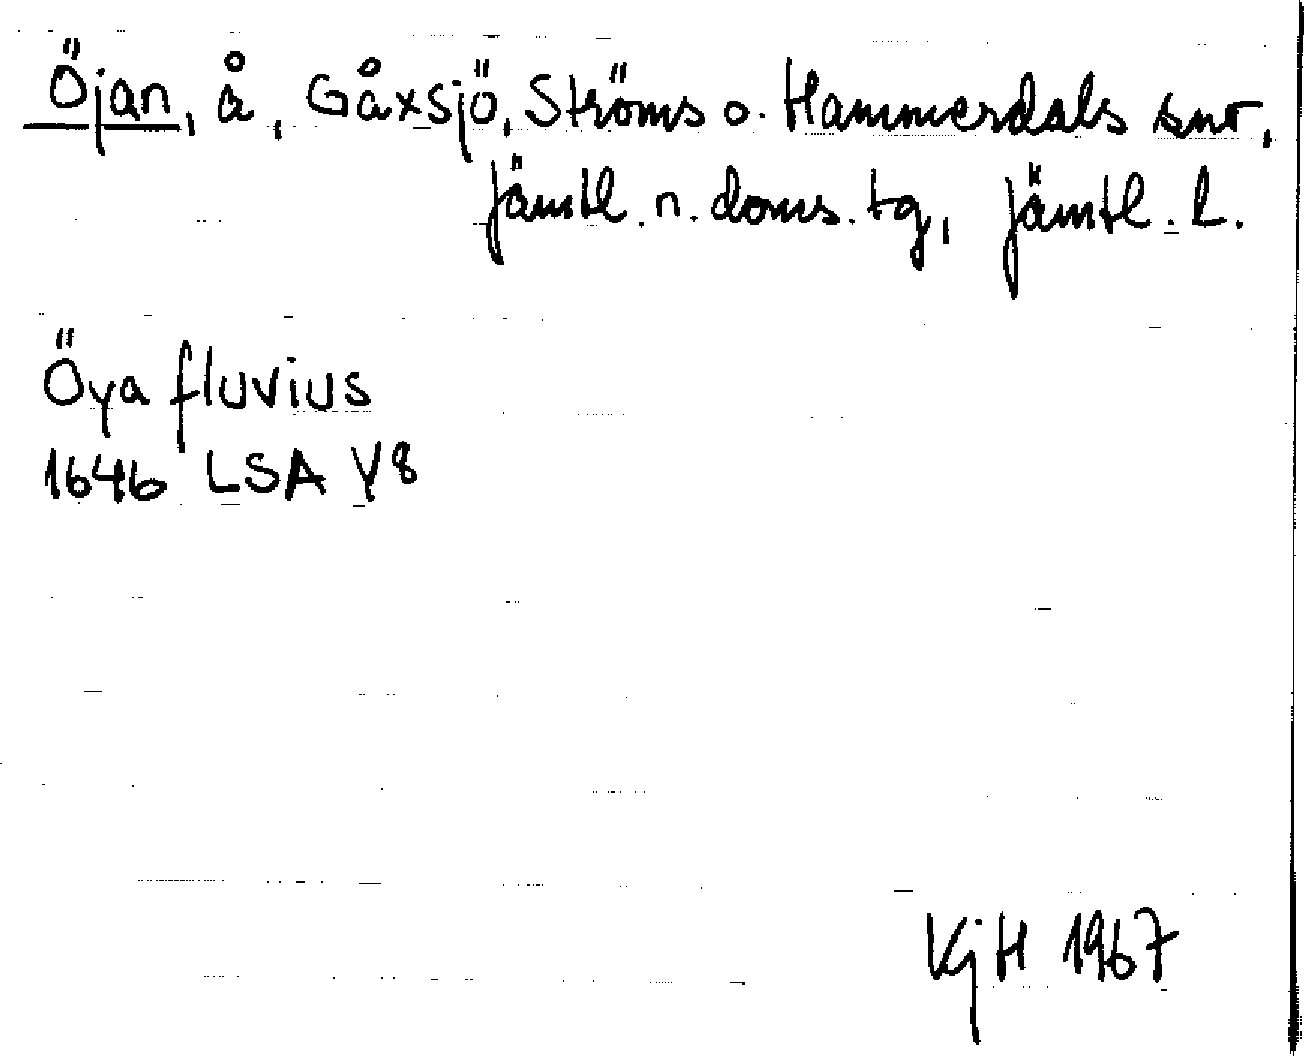 Öjan, å, Gåxsjö, Ströms o. Hammerdals snr,
Jämtl. n. doms. tg, Jämtl. L.
Öya fluvius
1646 LSA Y8
KjH 1967